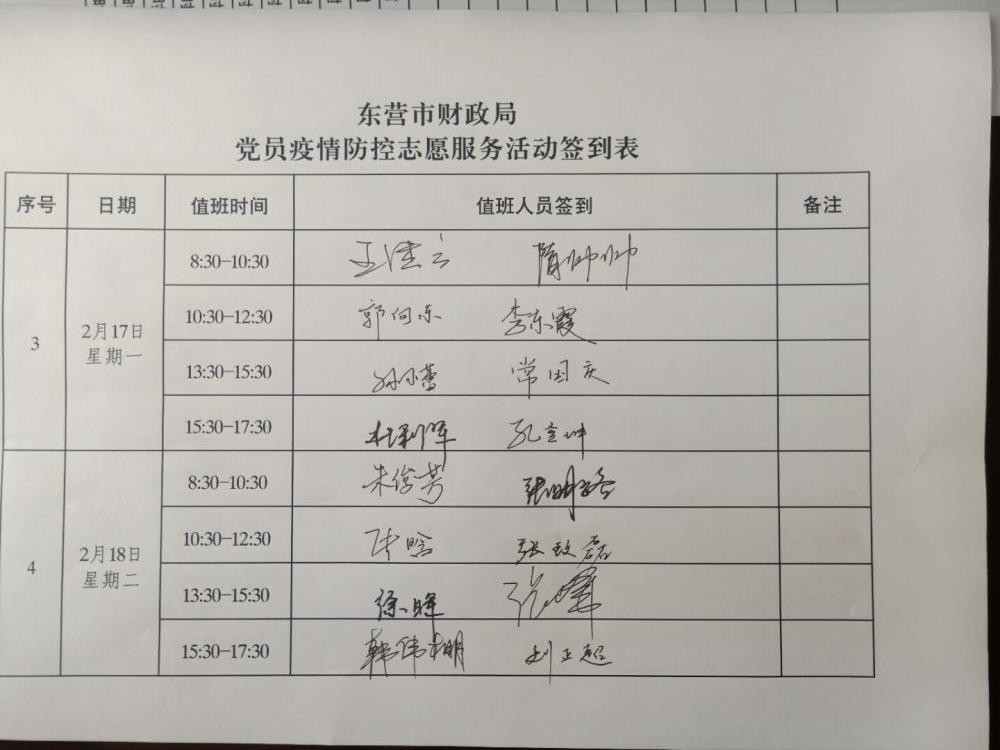 东营市财政局
党员疫情防控志愿服务活动签到表
序号 日期 值班时间 值班人员签到 备注
3 2月17日 星期一
8:30-10:30 王佳云 隋帅帅
10:30-12:30 郭向东 李东霞
13:30-15:30 孙小蕾 常国庆
15:30-17:30 杜利军
4 2月18日 星期二
8:30-10:30 朱俊芳
10:30-12:30 张晗 张玫磊
13:30-15:30 徐晖 张峰
15:30-17:30 韩伟明 刘正超